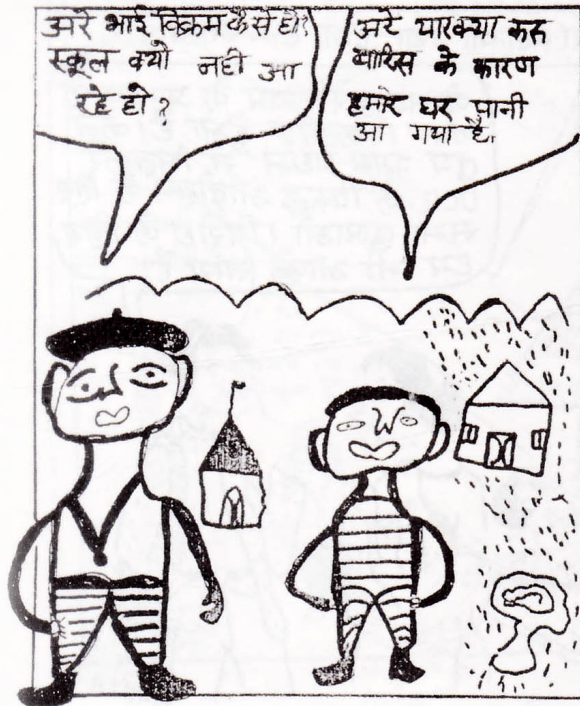 अरे भाई विक्रम कैसे हो?
स्कूल क्यो नही आ
रहे हो?
अरे यार क्या करू
बारिस के कारण
हमारे घर पानी
आ गया है